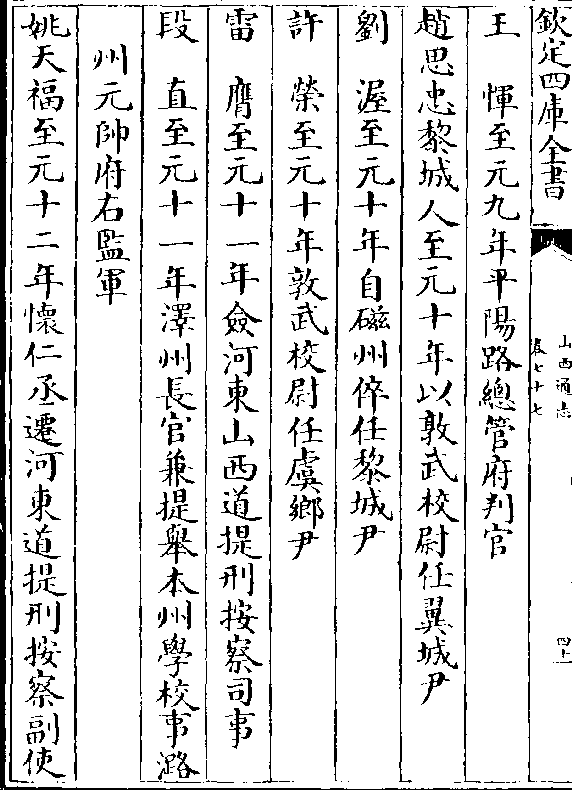 欽定四庫全書
山西通志
卷七十七
四十一
王　惲至元九年平陽路總管府判官
趙思忠黎城人至元十年以敦武校尉任翼城尹
劉　渥至元十年自磁州倅任黎城尹
許　榮至元十年敦武校尉任虞鄉尹
雷　膺至元十一年僉河東山西道提刑按察司事
段　直至元十一年澤州長官兼提舉本州學校事潞
州元帥府右監軍
姚天福至元十二年懷仁丞遷河東道提刑按察副使